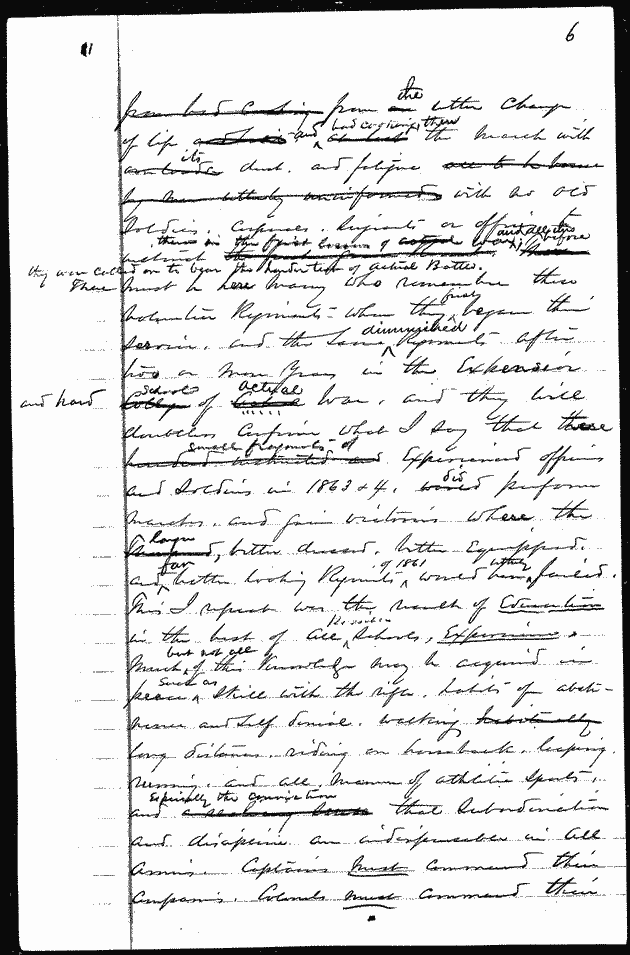 6
from bad cooking from the utter change
of life and bad cooking, then the march with
its dust, and fatigue
by men utterly uninformed with no old
Soldiers, Corporals, Sergeants or officers to
instruct them in the first lessons of war, and all this before
they were called on to bear the harder test of actual Battle.
There must be here many who remember these
Volunteer Regiments when they first began their
service, and the same diminished Regiments after
two or more years in the Expensive
and hard School of actual War, and they will
doubtless confirm what I say that these
small fragments of Experienced officers
and Soldiers in 1863 & 4, did perform
marches, and gain victories where the
larger, better dressed, better Equipped,
and far better looking Regiments of 1861 would have utterly failed.
This I repeat was the result of Education
in the best of all Schools, Experience.
Much but not all of this Knowledge may be acquired in
peace such as skill with the rifle, habits of absti-
nence and self denial, walking habitually
long distances, riding on horseback, leaping,
running, and all manner of athletic sports,
and especially the conviction that Subordination
and discipline are indispensable in all
Armies. Captains must command their
Companies. Colonels must command their